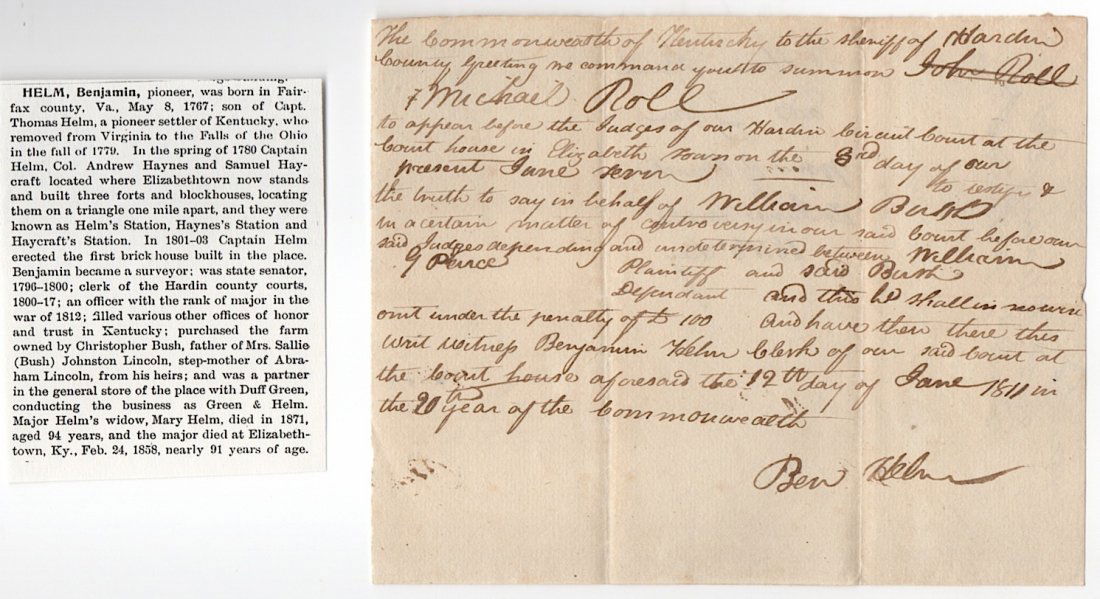 HELM, Benjamin, pioneer, was born in Fair-
fax county, Va., May 8, 1767; son of Capt.
Thomas Helm, a pioneer settler of Kentucky, who
removed from Virginia to the Falls of the Ohio
in the fall of 1779. In the spring of 1780 Captain
Helm, Col. Andrew Haynes and Samuel Hay-
craft located where Elizabethtown now stands
and built three forts and blockhouses, locating
them on a triangle one mile apart, and they were
known as Helm's Station, Haynes's Station and
Haycraft's Station. In 1801-03 Captain Helm
erected the first brick house built in the place.
Benjamin became a surveyor; was state senator,
1796-1800; clerk of the Hardin county courts,
1800-17; an officer with the rank of major in the
war of 1812; filled various other offices of honor
and trust in Kentucky; purchased the farm
owned by Christopher Bush, father of Mrs. Sallie
(Bush) Johnston Lincoln, step-mother of Abra-
ham Lincoln, from his heirs; and was a partner
in the general store of the place with Duff Green,
conducting the business as Green & Helm.
Major Helm's widow, Mary Helm, died in 1871,
aged 94 years, and the major died at Elizabeth-
town, Ky., Feb. 24, 1858, nearly 91 years of age.
The Commonwealth of Kentucky to the sheriff of Hardin
County Greeting we command you to summon John Roll
Michael Roll
to appear before the Judges of our Hardin Circuit Court at the
Court house in Elizabeth Town on the 3rd day of our
present June to testify &
the truth to say in behalf of William Bush
in a certain matter of controversy in our said Court before our
said Judges depending and undetermined between William
Plaintiff and said Bush
Defendant and this he shall in no wise
omit under the penalty of £ 100 and have then there this
writ witness Benjamin Helm Clerk of our said Court at
the Court house aforesaid the 12th day of June 1811 in
the 20th year of the Commonwealth
Ben Helm